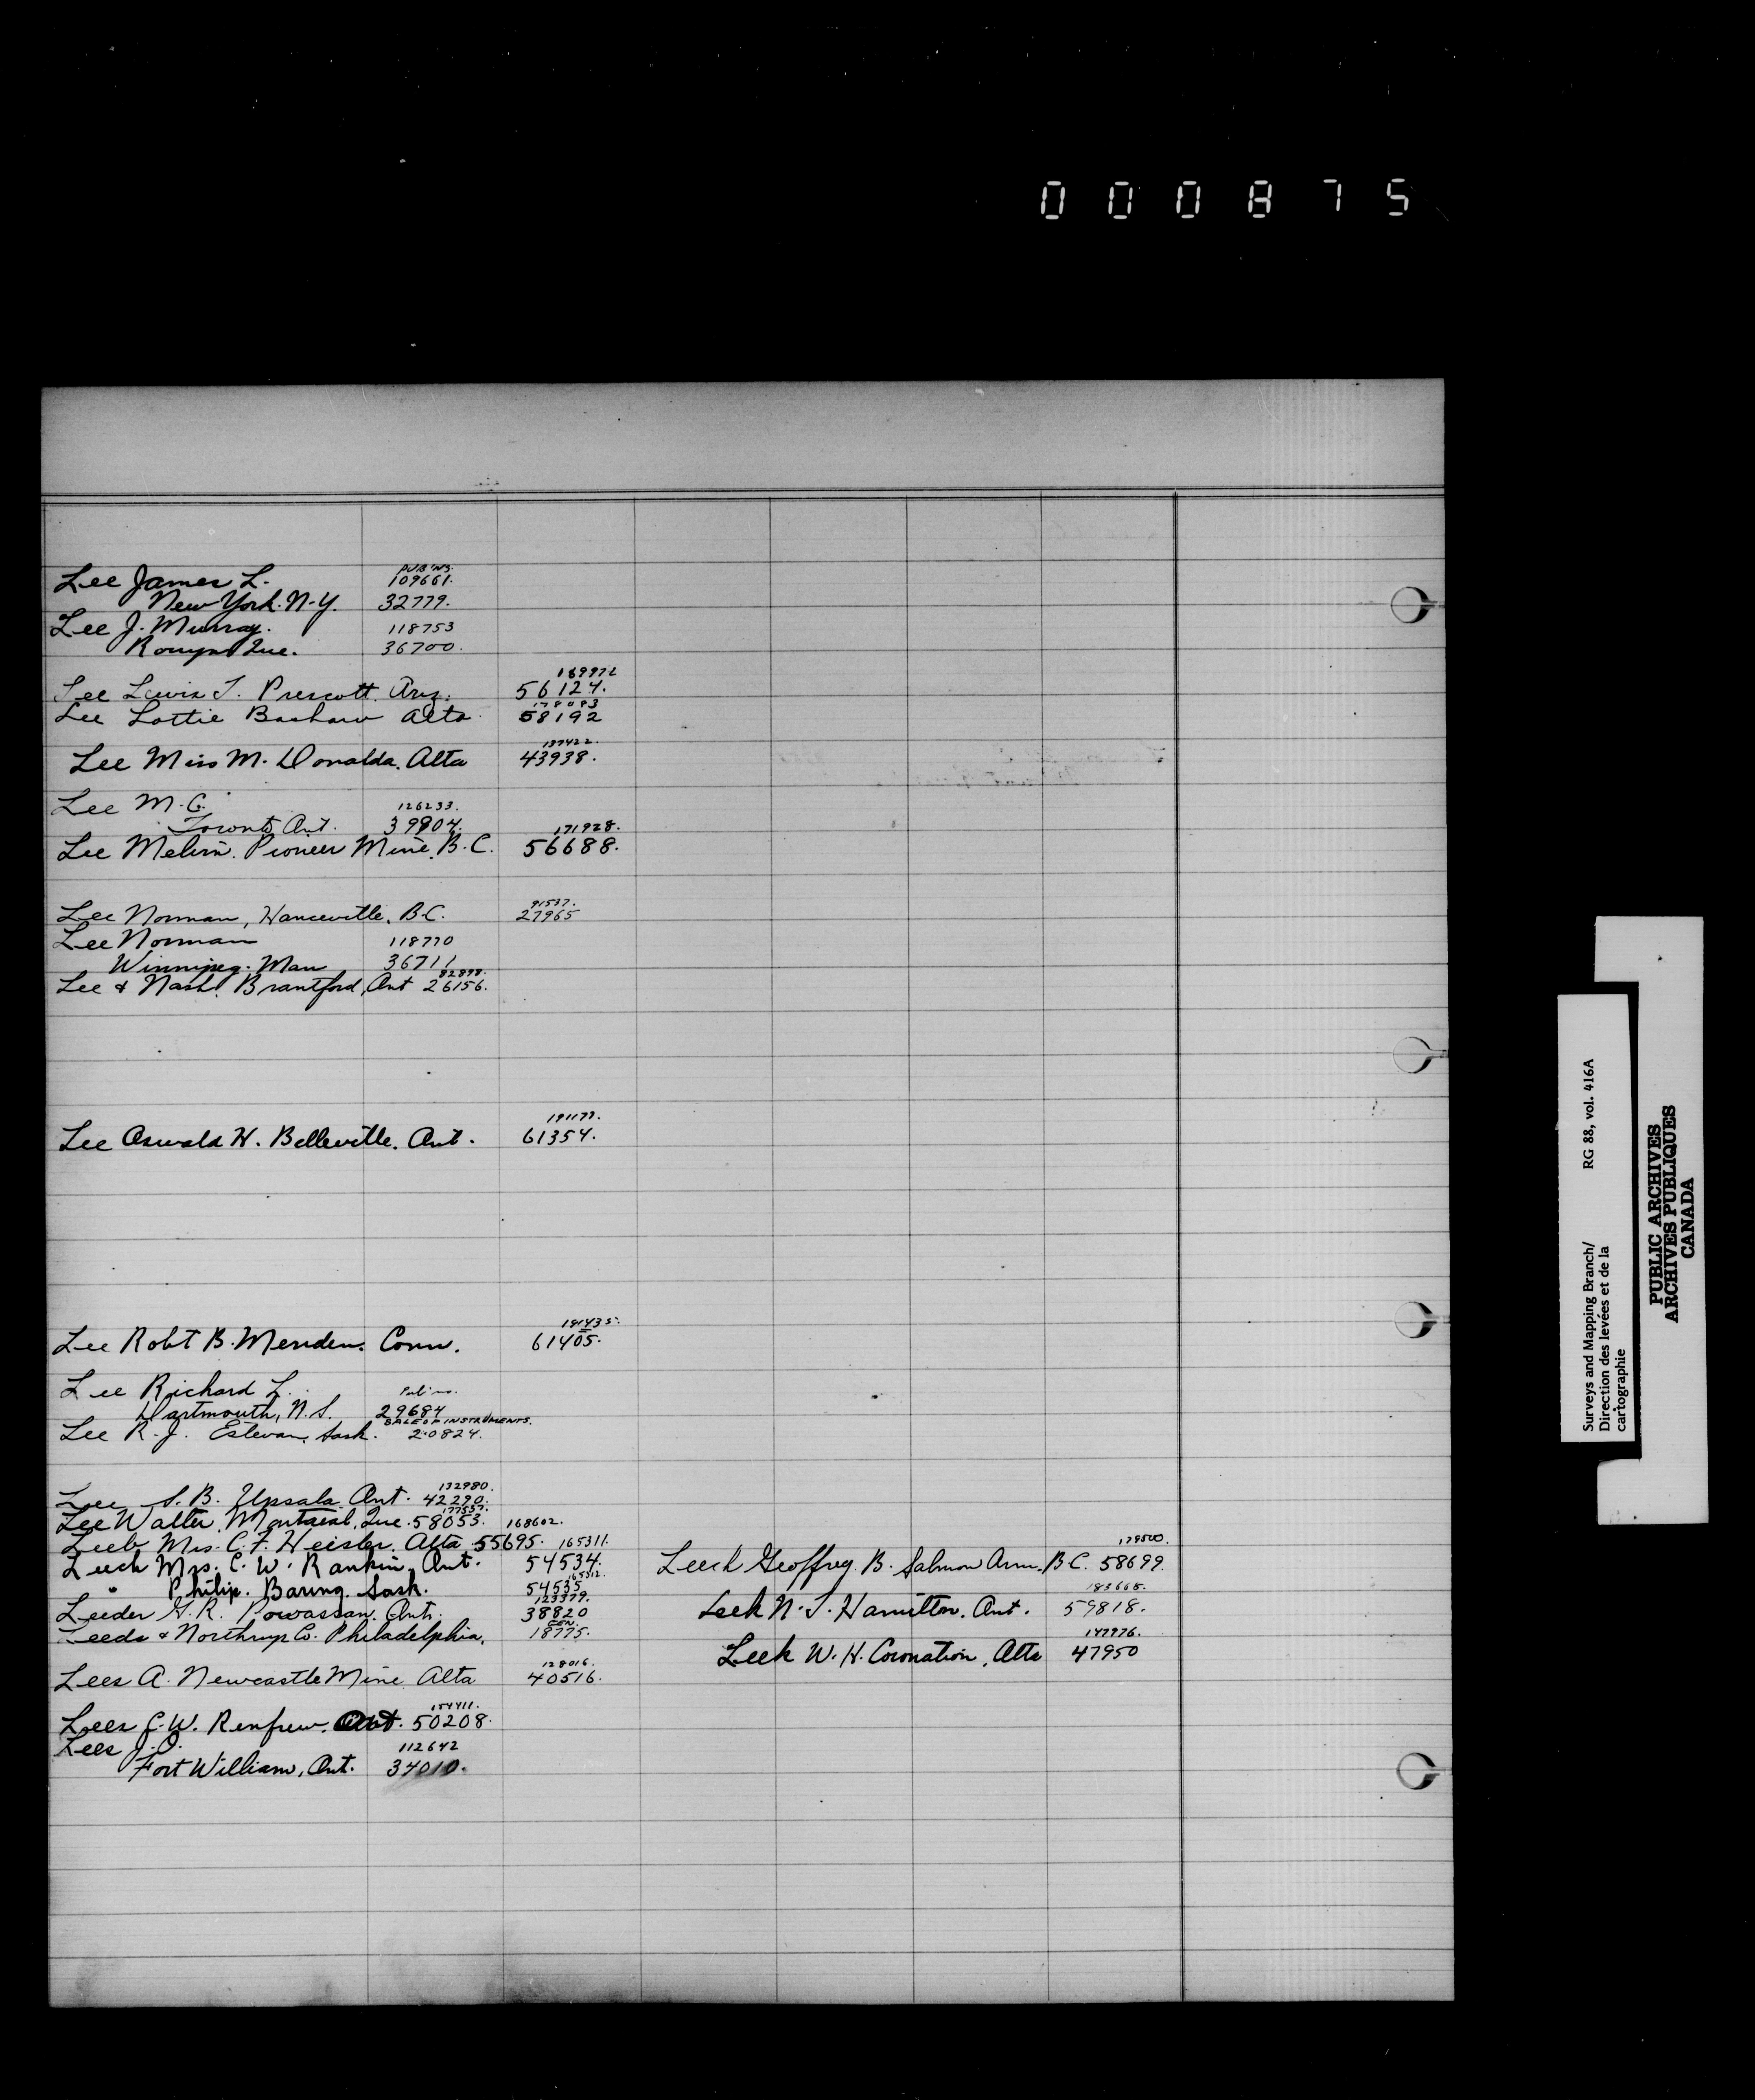 000875
PUB'NS.
Lee James L. 109661.
New York. N-Y. 32779.
Lee J. Murray. 118753
Rouyn Que. 36700.
169972
Lee Lewis T. Prescott. Ariz. 56124.
178083
Lee Lottie Bashaw Alta. 58192
137422.
Lee Miss M. Donalda. Alta 43938.
Lee M. G. 126233.
Toronto Ont. 39804.
171928.
Lee Melvin. Pioneer Mine. B.C. 56688.
91537.
Lee Norman, Hanceville. B.C. 27965
Lee Norman 118770
Winnipeg. Man 36711
82898.
Lee & Nash. Brantford, Ont 26156.
191177.
Lee Oswald H. Belleville. Ont. 61354.
191435.
Lee Robt B. Meriden. Conn. 61405.
Lee Richard L. Pub'ns.
Dartmouth, N.S. 29684
SALE OF INSTRUMENTS.
Lee R. J. Estevan. Sask. 20824.
132980.
Lee S. B. Upsala Ont. 42290.
177537.
Lee Walter. Montreal, Que. 58053.
168602.
Leeb Mrs. C. F. Heisler. Alta 55695.
165311.
Leech Mrs. C. W. Rankin, Ont. 54534.
165312.
" Philip. Baring. Sask. 54535
123379.
Leeder G. R. Powassan. Ont. 38820
GEN.
Leeds & Northrup Co. Philadelphia. 18775.
128016.
Lees A. Newcastle Mine Alta 40516.
154411.
Lees C. W. Renfrew. Ont. 50208.
Lees J. O. 112642
Fort William, Ont. 34010.
179500.
Leech Geoffrey. B. Salmon Arm. B.C. 58699.
183668.
Leek N. S. Hamilton. Ont. 59818.
147976.
Leek W. H. Coronation, Alta 47950
Surveys and Mapping Branch/ RG 88, vol. 416A
Direction des levées et de la
cartographie
PUBLIC ARCHIVES
ARCHIVES PUBLIQUES
CANADA